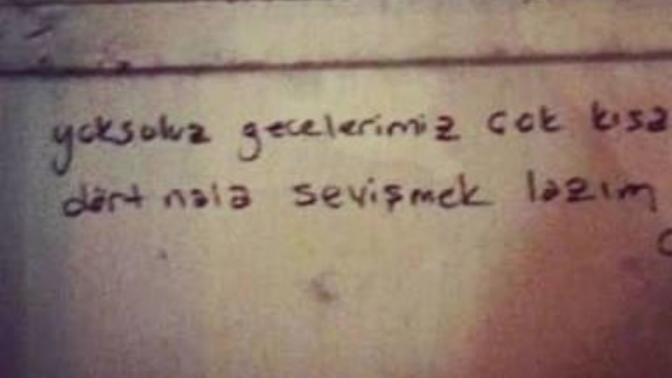 yoksuluz gecelerimiz çok kısa
dört nala sevişmek lazım